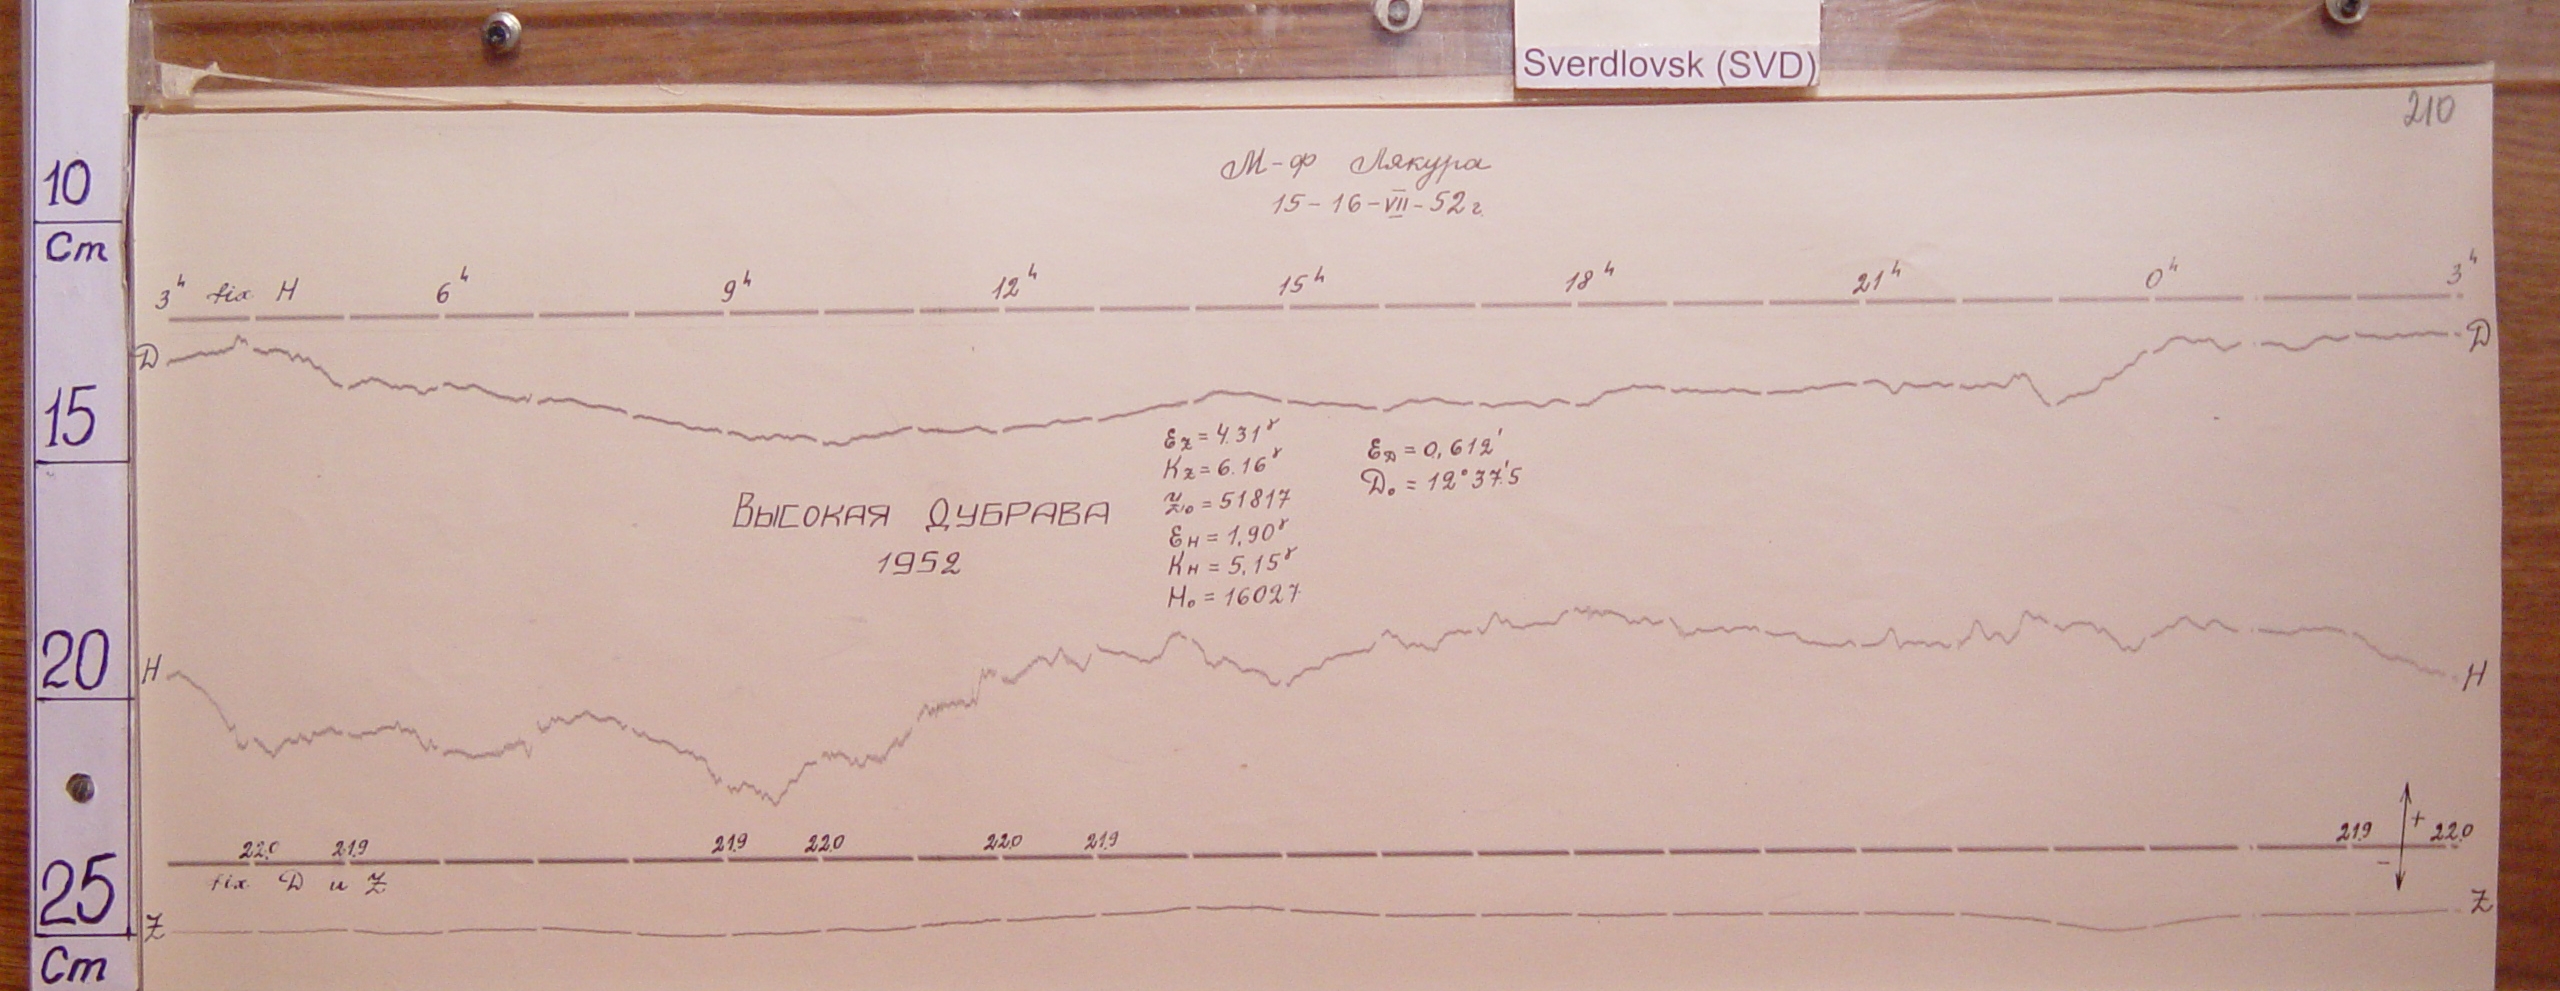 Sverdlovsk (SVD)
210
10
Cm
М-ф Лякура
15-16-VII-52г.
3ʰ fix H 6ʰ 9ʰ 12ʰ 15ʰ 18ʰ 21ʰ 0ʰ 3ʰ
D D
15
Ez = 4.31ᵞ
Kz = 6.16ᵞ
Z₀ = 51817
EH = 1.90ᵞ
KH = 5.15ᵞ
H₀ = 16027
ED = 0,612'
D₀ = 12°37'.5
ВЫСОКАЯ ДУБРАВА
1952
20
H H
22.0 21.9 21.9 22.0 22.0 21.9 21.9 + 22.0
-
fix D и Z
25
Z Z
Cm